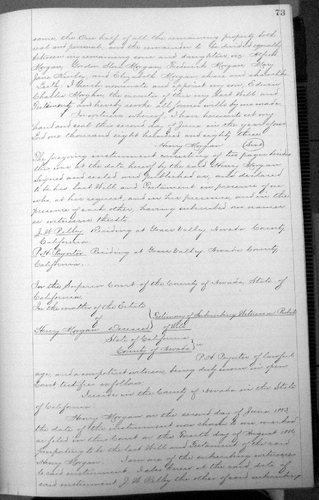 73
some, the One half of all the remaining property both
real and personal, and the remainder to be divided equally
between my remaining sons and daughters, viz
Morgan, Gordon Morgan, Frederick Morgan,
Jane and Elizabeth Morgan share and share alike
Lastly I hereby nominate and appoint my son Edwin
Morgan, the executor of this my last Will and
Testament and hereby revoke all former wills by me made
In witness whereof, I have hereunto set my
hand and seal the second day of June in the year of our
Lord one thousand eight hundred and eighty three
Henry Morgan Seal
The foregoing instrument consisting of two pages besides
this was at the date hereof by the said Henry Morgan
signed and sealed and published as, and declared
to be his last Will and Testament in presence of us
who, at his request, and in his presence, and in the
presence of each other, have subscribed our names
as witnesses thereto
Residing at Grass Valley Nevada County
California.
Residing at Grass Valley Nevada County
California.
In the Superior Court of the County of Nevada State of
California
In the matter of the Estate
of
Henry Morgan Deceased
Testimony of Subscribing Witness on Probate
of Will
State of California
County of Nevada
of lawful
age, and a competent witness, being duly sworn in open
Court testifies as follows
I reside in the County of Nevada in the State
of California
Henry Morgan on the second day of June 1883
the date of the Instrument now shown to me marked
as filed in this Court on the day of August 188
purporting to be the last Will and Testament of the said
Henry Morgan. I am one of the subscribing witnesses
to said instrument. I also knew at the said date of
said instrument, J. W. the other of said subscribing